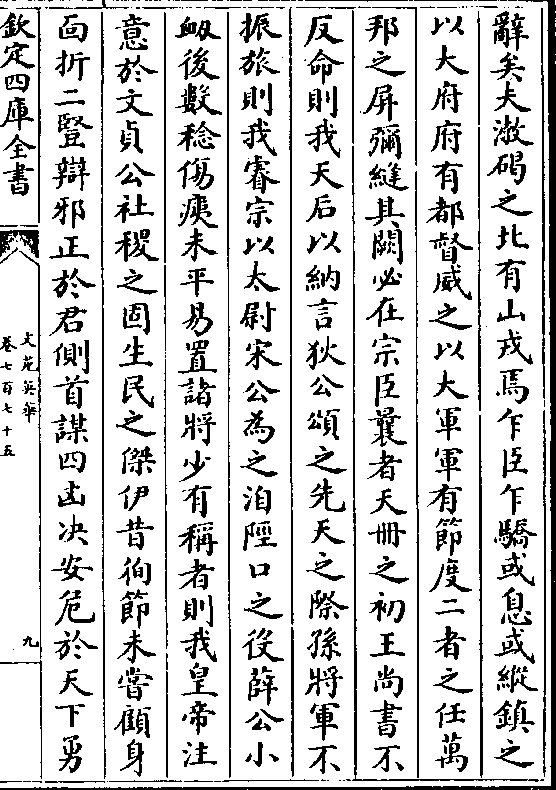 辭矣夫漵碣之北有山戎焉乍臣乍驕或息或縱鎮之
以大府府有都督威之以大軍軍有節度二者之任萬
邦之屏彌縫其闕必在宗臣曩者天冊之初王尚書不
反命則我天后以納言狄公頌之先天之際孫將軍不
振旅則我睿宗以太尉宋公為之洎陘口之役薛公小
衂後數稔傷痍未平易置諸將少有稱者則我皇帝注
意於文貞公社稷之固生民之傑伊昔徇節未嘗顧身
面折二豎辯邪正於君側首謀四凶決安危於天下勇
欽定四庫全書
文苑英華
卷七百七十五
九